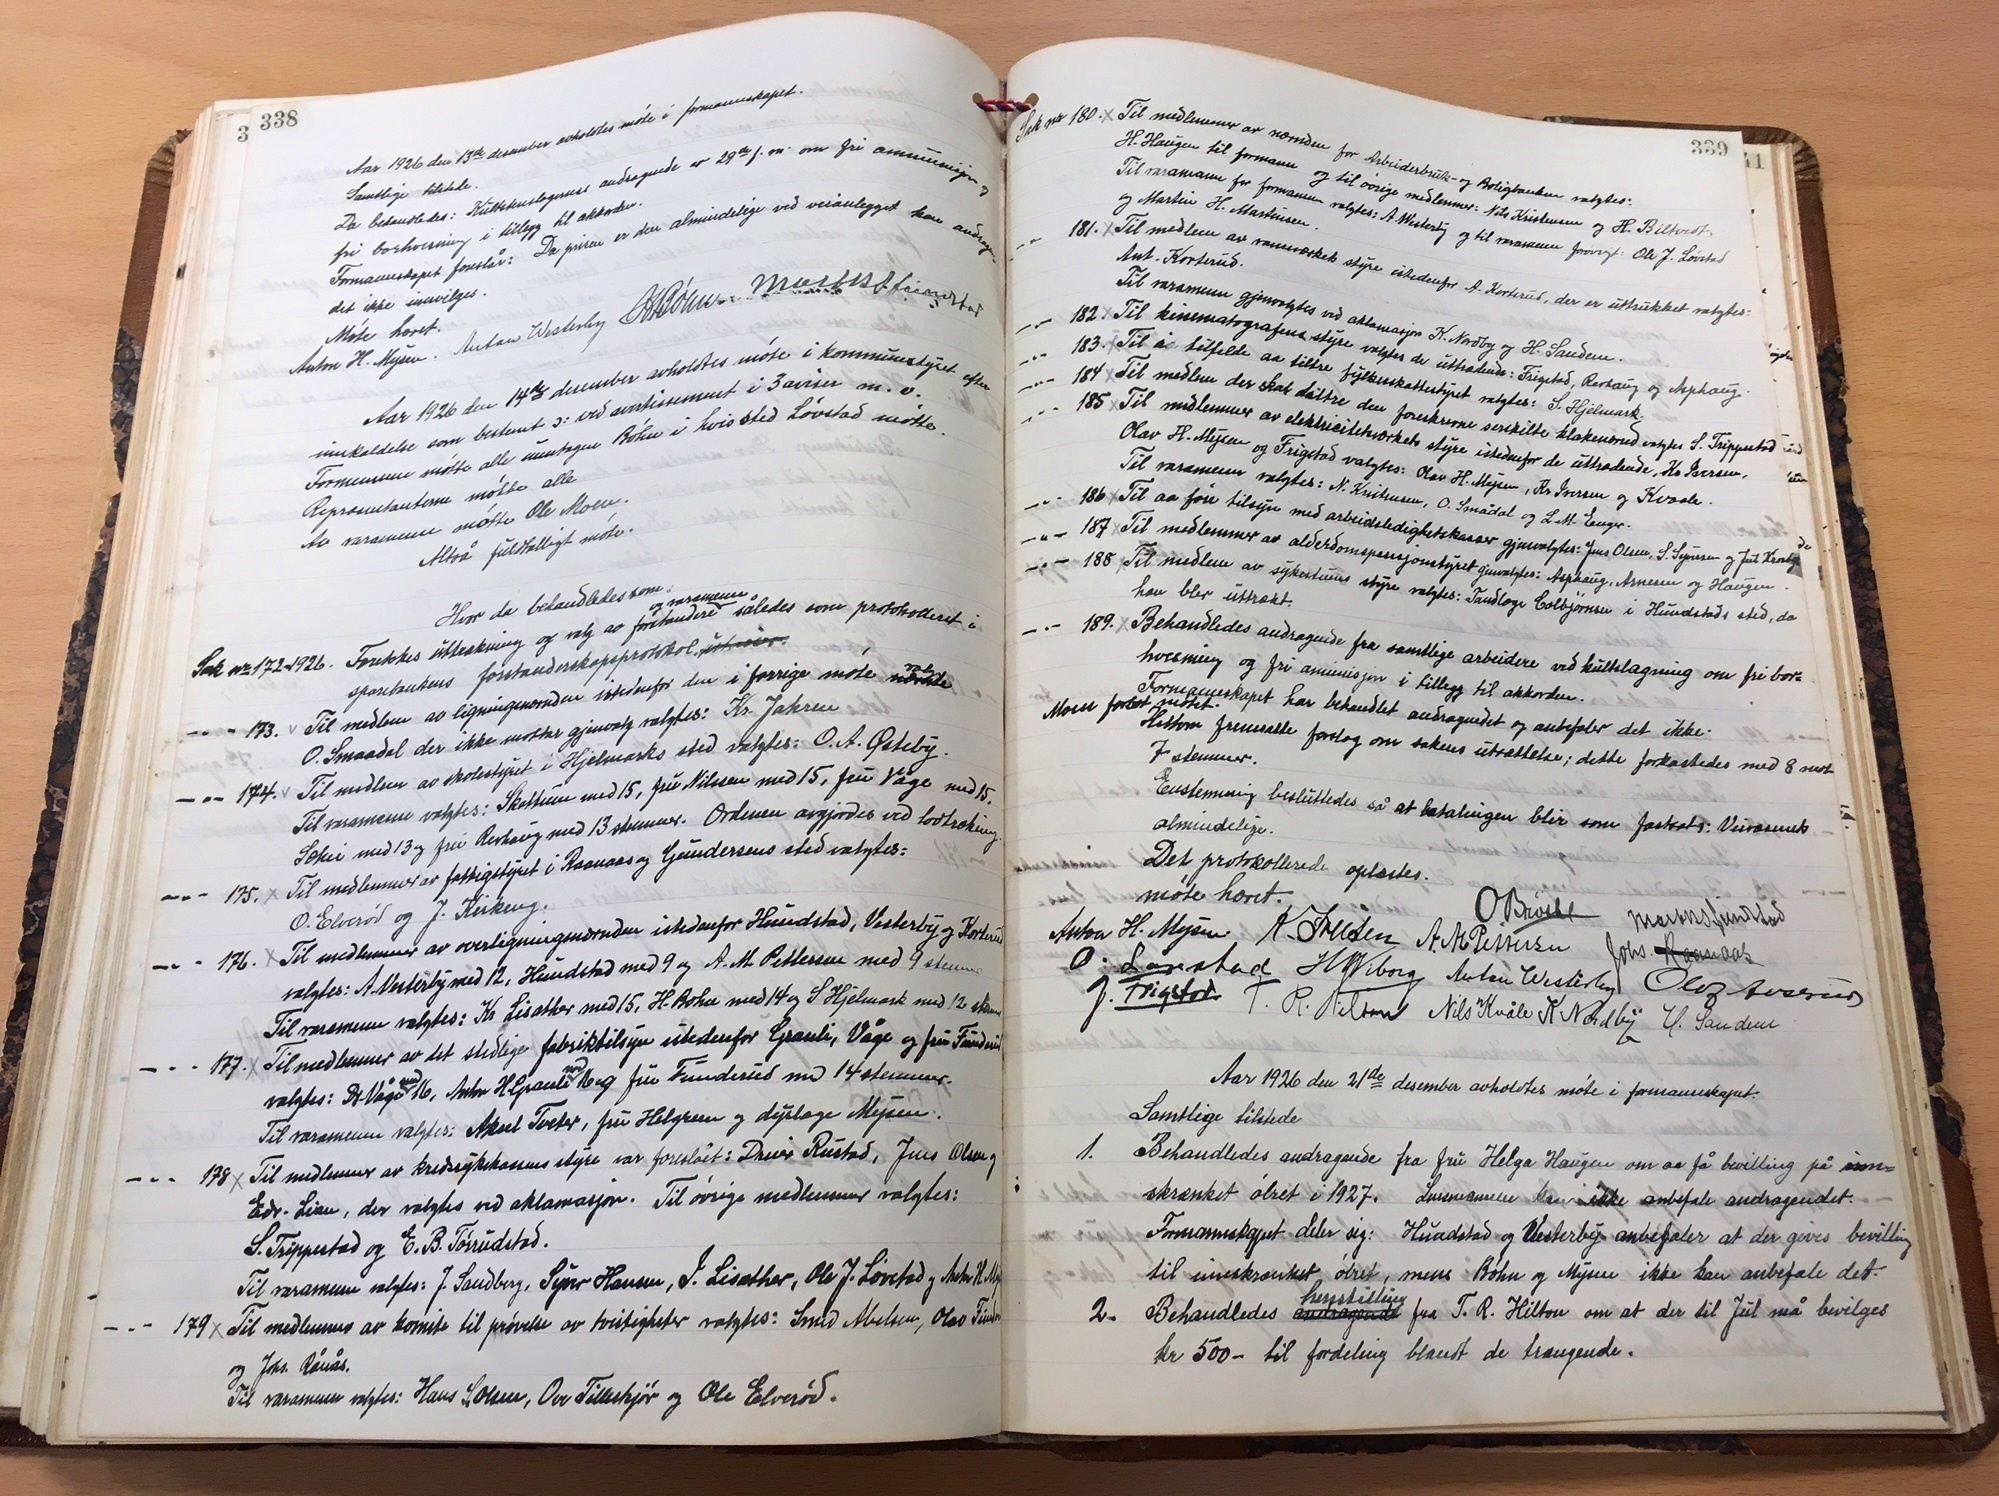 3 338
Aar 1926 den 13de desember avholdtes møte i formannskapet.
Samtlige tilstede.
Da behandledes: Kultslagernes andragende av 29de f. m. om fri ammunisjon og
fri borhvesning i tillegg til akkorden.
Formannskapet foreslår: Da prisen er den almindelige ved veianlegget kan andrag-
det ikke innvilges.
Møte hævet.
Anton H. Mysen. Anton Westerby H Bøhn Martin Hundstad
Aar 1926 den 14de desember avholdtes møte i kommunestyret efter
innkaldelse som bestemt ɔ: ved avertissement i 3 aviser m. v.
Formennene møtte alle unntagen Bøhn i hvis sted Løvstad møtte.
Representanterne møtte alle
Av varamenn møtte Ole Moen.
Altså fuldtalligt møte.
Hvor da behandledes som:
og varamenn
Sak nr 172-1926. Foretokes uttrekning og valg av forstandere således som protokolleret i
sparebankens forstanderskapsprotokol
--- 173. v Til medlem av ligningsnevnden istedenfor den i forrige møte
O. Smaadal der ikke mottar gjenvalg valgtes: Kr. Jahren
--- 174. v Til medlem av skolestyret i Hjelmarks sted valgtes: O. A. Østeby.
Til varamenn valgtes: Skottum med 15, fru Nilssen med 15, fru Våge med 15,
med 13 og fru Revhaug med 13 stemmer. Ordenen avgjordes ved lodtrækning.
--- 175. x Til medlemmer av fattigstyret i Raanaas og Gundersens sted valgtes:
O. Elverød og J. Kirkeng.
--- 176. x Til medlemmer av overligningsnevnden istedenfor Hundstad, Vesterby og Korterud
valgtes: A. Vesterby med 12, Hundstad med 9 og A. M. Pettersen med 9 stemmer
Til varamenn valgtes: Kr Lisæther med 15, H. Bøhn med 14 og S Hjelmark med 12 stem
--- 177. x Til medlemmer av det stedlige fabriktilsyn istedenfor Grauli, Våge og fru Funderud
valgtes: Dr Våge med 16, Anton H Grauli med 16 og fru Funderud med 14 stemmer.
Til varamenn valgtes: Aksel Tveter, fru Helgesen og dyrlæge Mysen.
--- 178 x Til medlemmer av kredssykekassens styre var foreslåt: Rustad, Jens Olsen og
Edv. Lian, der valgtes ved aklamasjon. Til øvrige medlemmer valgtes:
S. Trippestad og E. B. Tørrudstad.
Til varamenn valgtes: J. Sandberg, Syver Hansen, I. Lisæther, Ole J. Løvstad og Anton H. My
--- 179 x Til medlemmer av komite til prøvelse av tvistigheter valgtes: Smed Abelsen, Olav Funder
og Johs. Rånås.
Til varamenn valgtes: Hans S. Olsen, Ove Tilleskjør og Ole Elverød.
339 41
Sak nr 180. x Til medlemmer av nevnden for Arbeiderbruk- og Boligbanken valgtes:
H. Haugen til formann og til øvrige medlemmer: Nils Kristensen og H. Biltvedt.
Til varamann for formannen valgtes: A Westerby og til varamenn forøvrigt: Ole J. Løvstad
og Martin H. Martinsen.
--- 181. x Til medlem av styre istedenfor A. Korterud, der er uttrukket valgtes:
Ant. Korterud.
Til varamenn gjenvalgtes ved aklamasjon K. Nordby og H. Sandem.
--- 182 x Til kinematografens styre valgtes de uttrædende: Frigstad, Revhaug og Asphaug.
--- 183. x Til i tilfelde aa tiltre fylkesskattestyret valgtes: S. Hjelmark.
--- 184 x Til medlem der skal tiltre den foreskrevne serskilte klakenevnd valgtes S. Trippestad
--- 185 x Til medlemmer av elektricitetsverkets styre istedenfor de uttrædende, Kr Iversen,
Olav H. Mysen og Frigstad valgtes: Olav H. Mysen, Kr Iversen og Kvaale.
Til varamenn valgtes: N. Kristensen, O. Smådal og L. M. Enger.
--- 186 x Til aa føre tilsyn med arbeidsledighetskasser gjenvalgtes: Jens Olsen, S. Syversen og Jul Krosby
--- 187 x Til medlemmer av alderdomspensjonstyret gjenvalgtes: Asphaug, Arnesen og Haugen.
--- 188 Til medlem av sykestuens styre valgtes: Tandlæge Colbjørnsen i Hundstads sted, da
han blev uttrækt.
--- 189. x Behandledes andragende fra samtlige arbeidere ved kultslagning om fri bor-
hvesning og fri amunisjon i tillegg til akkorden.
Formannskapet har behandlet andragendet og anbefaler det ikke.
Moen forlot møtet.
Hilton fremsatte forslag om sakens utsættelse; dette forkastedes med 8 mot
7 stemmer.
Enstemmig besluttedes så at betalingen blir som fastsat: Veivæsenets
almindelige.
Det protokollerede oplæstes.
møte hævet.
Anton H. Mysen. A. M Pettersen Martin Hundstad
O. Løvstad H Wiborg Anton Westerby Johs. Raanaas
J. Frigstad T. R. Hilton Nils Kvåle K Nordby H. Sandem
Aar 1926 den 21de desember avholdtes møte i formannskapet.
Samtlige tilstede
1. Behandledes andragende fra fru Helga Haugen om aa få bevilling på inn-
skrænket ølret i 1927. Lensmannen kan ikke anbefale andragendet.
Formannskapet deler sig: Hundstad og Vesterby anbefaler at der gives bevilling
til innskrænket ølret, mens Bøhn og Mysen ikke kan anbefale det.
henstilling
2. Behandledes andragende fra T. R. Hilton om at der til Jul må bevilges
kr 500- til fordeling blandt de trængende.